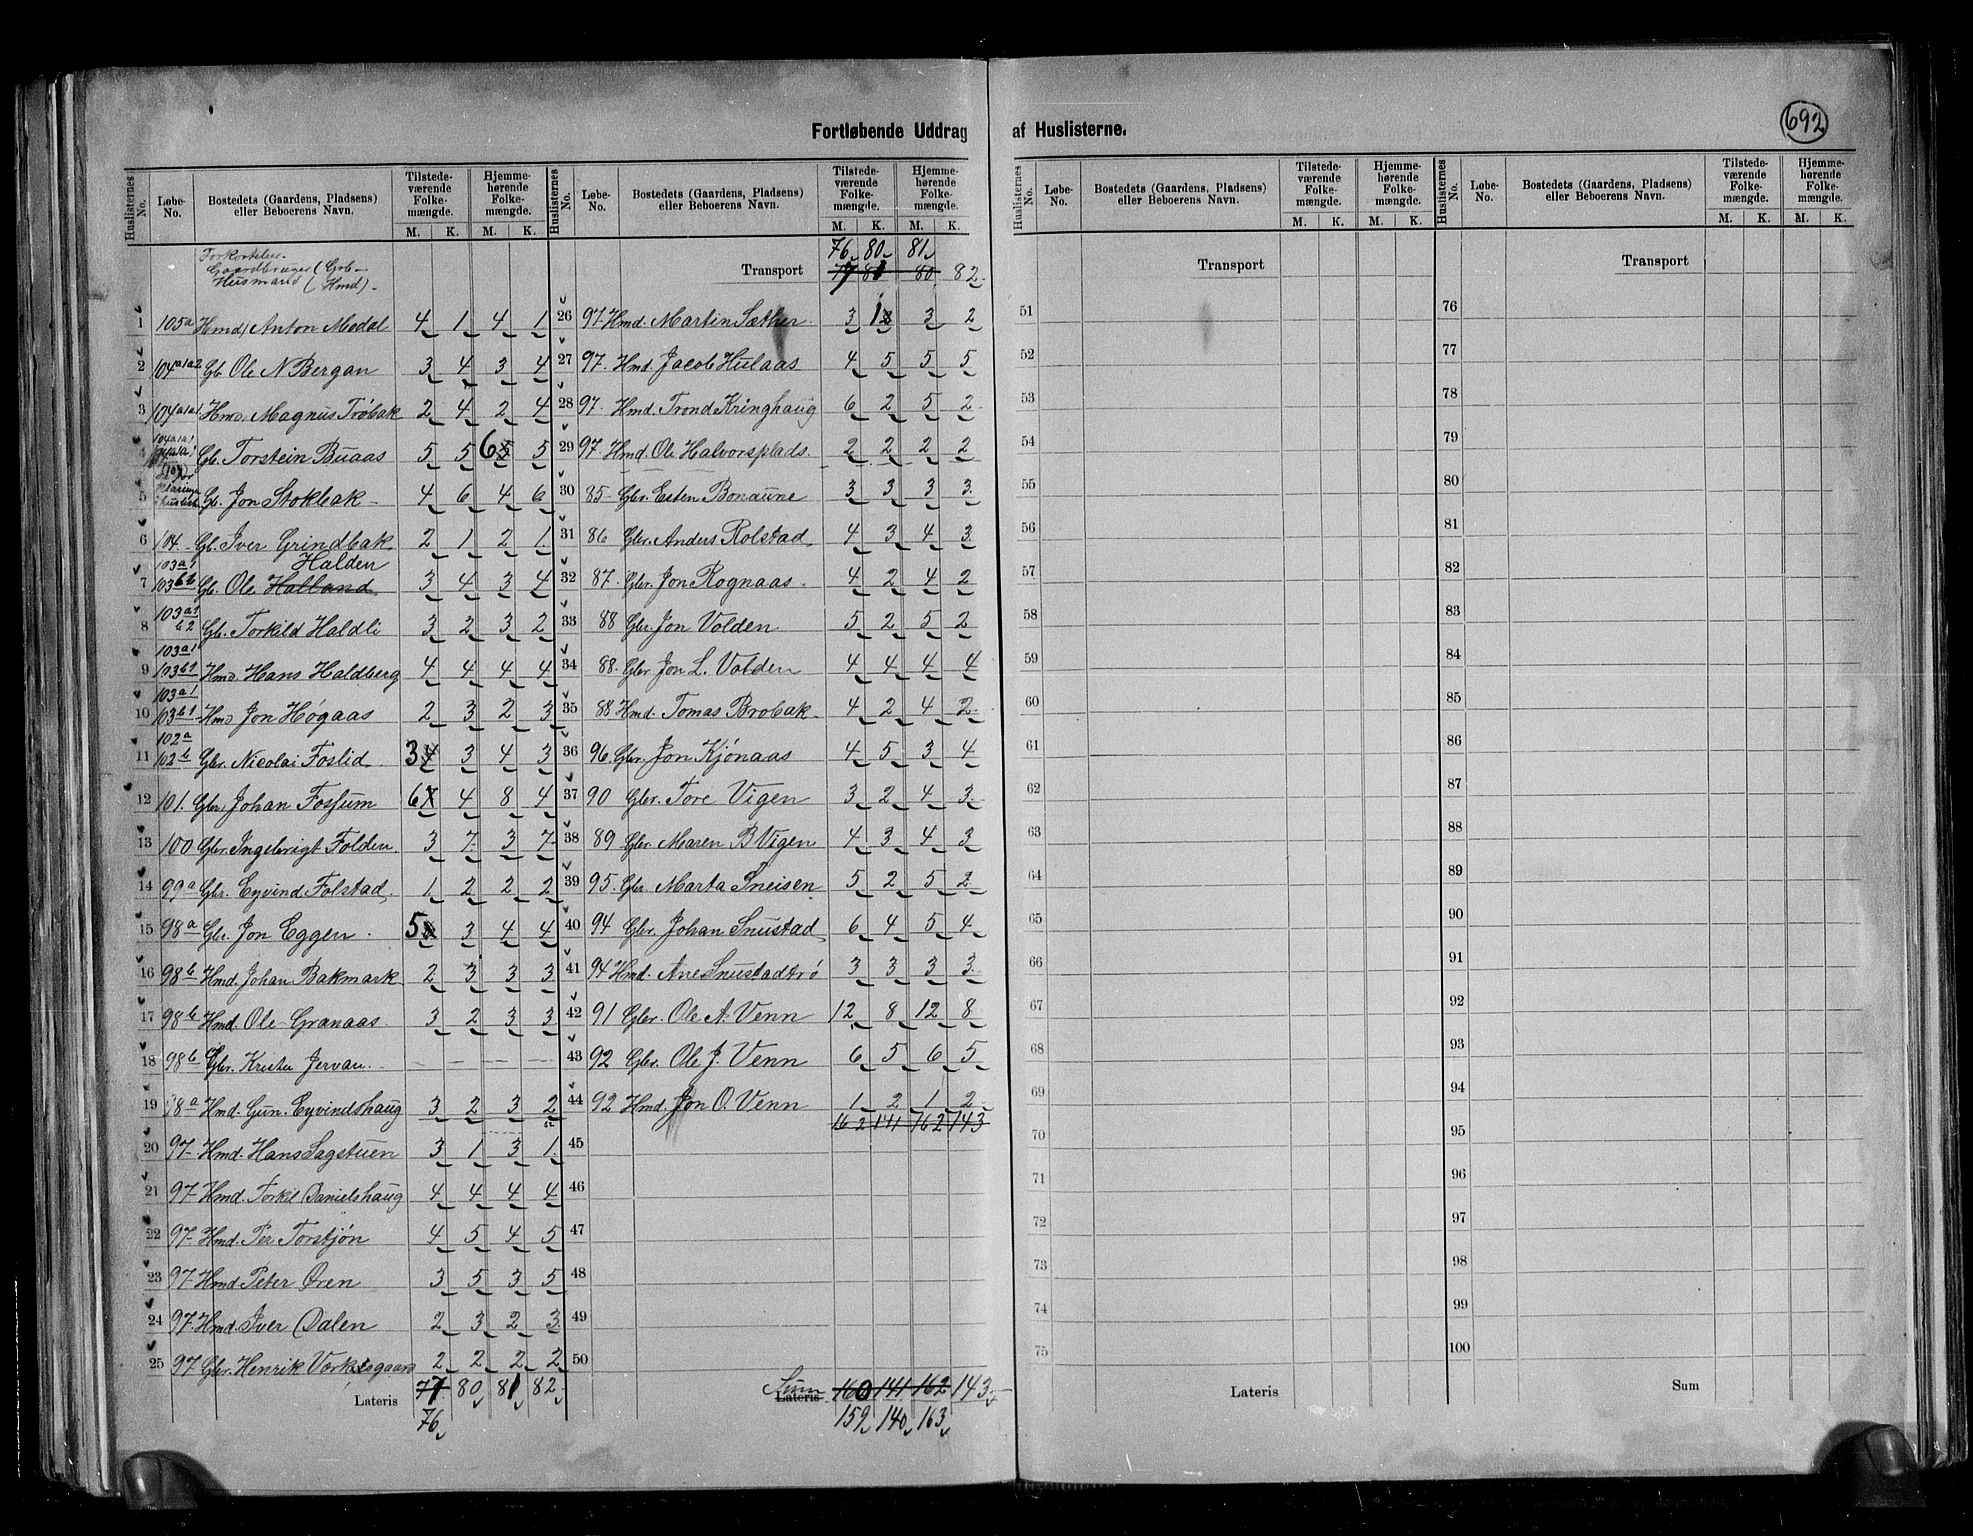 692
Fortløbende Uddrag af Huslisterne.
Huslisternes No. Løbe-No. Bostedets (Gaardens, Pladsens) eller Beboerens Navn. Tilstede-værende Folke-mængde. M. K. Hjemme-hørende Folke-mængde. M. K.
Forkortelser
Gaardbruger (Grb-
Husmand (Hmd).
1 105a Hmd) Anton Modal 4 1 4 1
2 104a1a2 Gb. Ole N Bergan 3 4 3 4
3 104a1a1 Hmd. Magnus Trøbak 2 4 2 4
4 104a1a1 Gb. Torstein Buaas 5 5 6 5
5 Gb. Jon Stokbak 4 6 4 6
6 104 Gb. Iver Grindbak 2 1 2 1
7 103a1 103b2 Gb. Ole Holland Halden 3 4 3 4
8 103a1 b2 Gb. Torkild Haldli 3 2 3 2
9 103a1 103b1 Hmd. Hans Haldberg 4 4 4 4
10 103a1 103b1 Hmd Jon Høgaas 2 3 2 3
11 102a 102b Gbr. Nicolai Foslid 3 3 4 3
12 101. Gbr. Johan Fossum 6 4 8 4
13 100 Gbr. Ingebrigt Folden 3 7 3 7
14 99a Gbr. Eyvind Folstad 1 2 2 2
15 98a Gbr. Jon Eggen 5 3 4 4
16 98b Hmd. Johan Bakmark 2 3 3 3
17 98b Hmd. Ole Granaas 3 2 3 3
18 98b Gbr. Krister Jervan - - - -
19 98a Hmd. Gun. Eyvindshaug 3 2 3 2
20 97 Hmd. Hans Sagstuen 3 1 3 1
21 97 Hmd. Torkil Danielshaug 4 4 4 4
22 97 Hmd. Per Torstjøn 4 5 4 5
23 97 Hmd. Peter Øren 3 5 3 5
24 97 Hmd. Iver Dalen 2 3 2 3
25 97 Gbr. Henrik Vorkelsgaard 2 2 2 2
Lateris 77 80 81 82
76
Huslisternes No. Løbe-No. Bostedets (Gaardens, Pladsens) eller Beboerens Navn. Tilstede-værende Folke-mængde. M. K. Hjemme-hørende Folke-mængde. M. K.
76 80 81
Transport 77 81 80 82
26 97 Hmd. Martin Sæther 3 1 3 2
27 97. Hmd. Jacob Hulaas 4 5 5 5
28 97 Hmd. Trond Kringhaug 6 2 5 2
29 97. Hmd. Ole Halvorsplads 2 2 2 2
30 85 Gbr. Esten Bonaune 3 3 3 3
31 86 Gbr. Anders Rolstad 4 3 4 3
32 87. Gbr. Jon Rognaas 4 2 4 2
33 88 Gbr. Jon Volden 5 2 5 2
34 88. Gbr. Jon L. Volden 4 4 4 4
35 88 Hmd. Tomas Brobak 4 2 4 2
36 96. Gbr. Jon Kjønaas 4 5 3 4
37 90 Gbr. Tore Vigen 3 2 4 3
38 89 Gbr. Maren B Vigen 4 3 4 3
39 95. Gbr. Marta Sneisen 5 2 5 2
40 94 Gbr. Johan Snustad 6 4 5 4
41 94 Hmd. Ane Snustadtrø 3 3 3 3
42 91 Gbr. Ole A. Venn 12 8 12 8
43 92 Gbr. Ole J. Venn 6 5 6 5
44 92 Hmd. Jon O. Venn 1 2 1 2
162 141 162 143
45
46
47
48
49
50
Sum
Lateris 160 141 162 143
159 140 163
Huslisternes No. Løbe-No. Bostedets (Gaardens, Pladsens) eller Beboerens Navn. Tilstede-værende Folke-mængde. M. K. Hjemme-hørende Folke-mængde. M. K.
Transport
51
52
53
54
55
56
57
58
59
60
61
62
63
64
65
66
67
68
69
70
71
72
73
74
75
Lateris
Huslisternes No. Løbe-No. Bostedets (Gaardens, Pladsens) eller Beboerens Navn. Tilstede-værende Folke-mængde. M. K. Hjemme-hørende Folke-mængde. M. K.
Transport
76
77
78
79
80
81
82
83
84
85
86
87
88
89
90
91
92
93
94
95
96
97
98
99
100
Sum